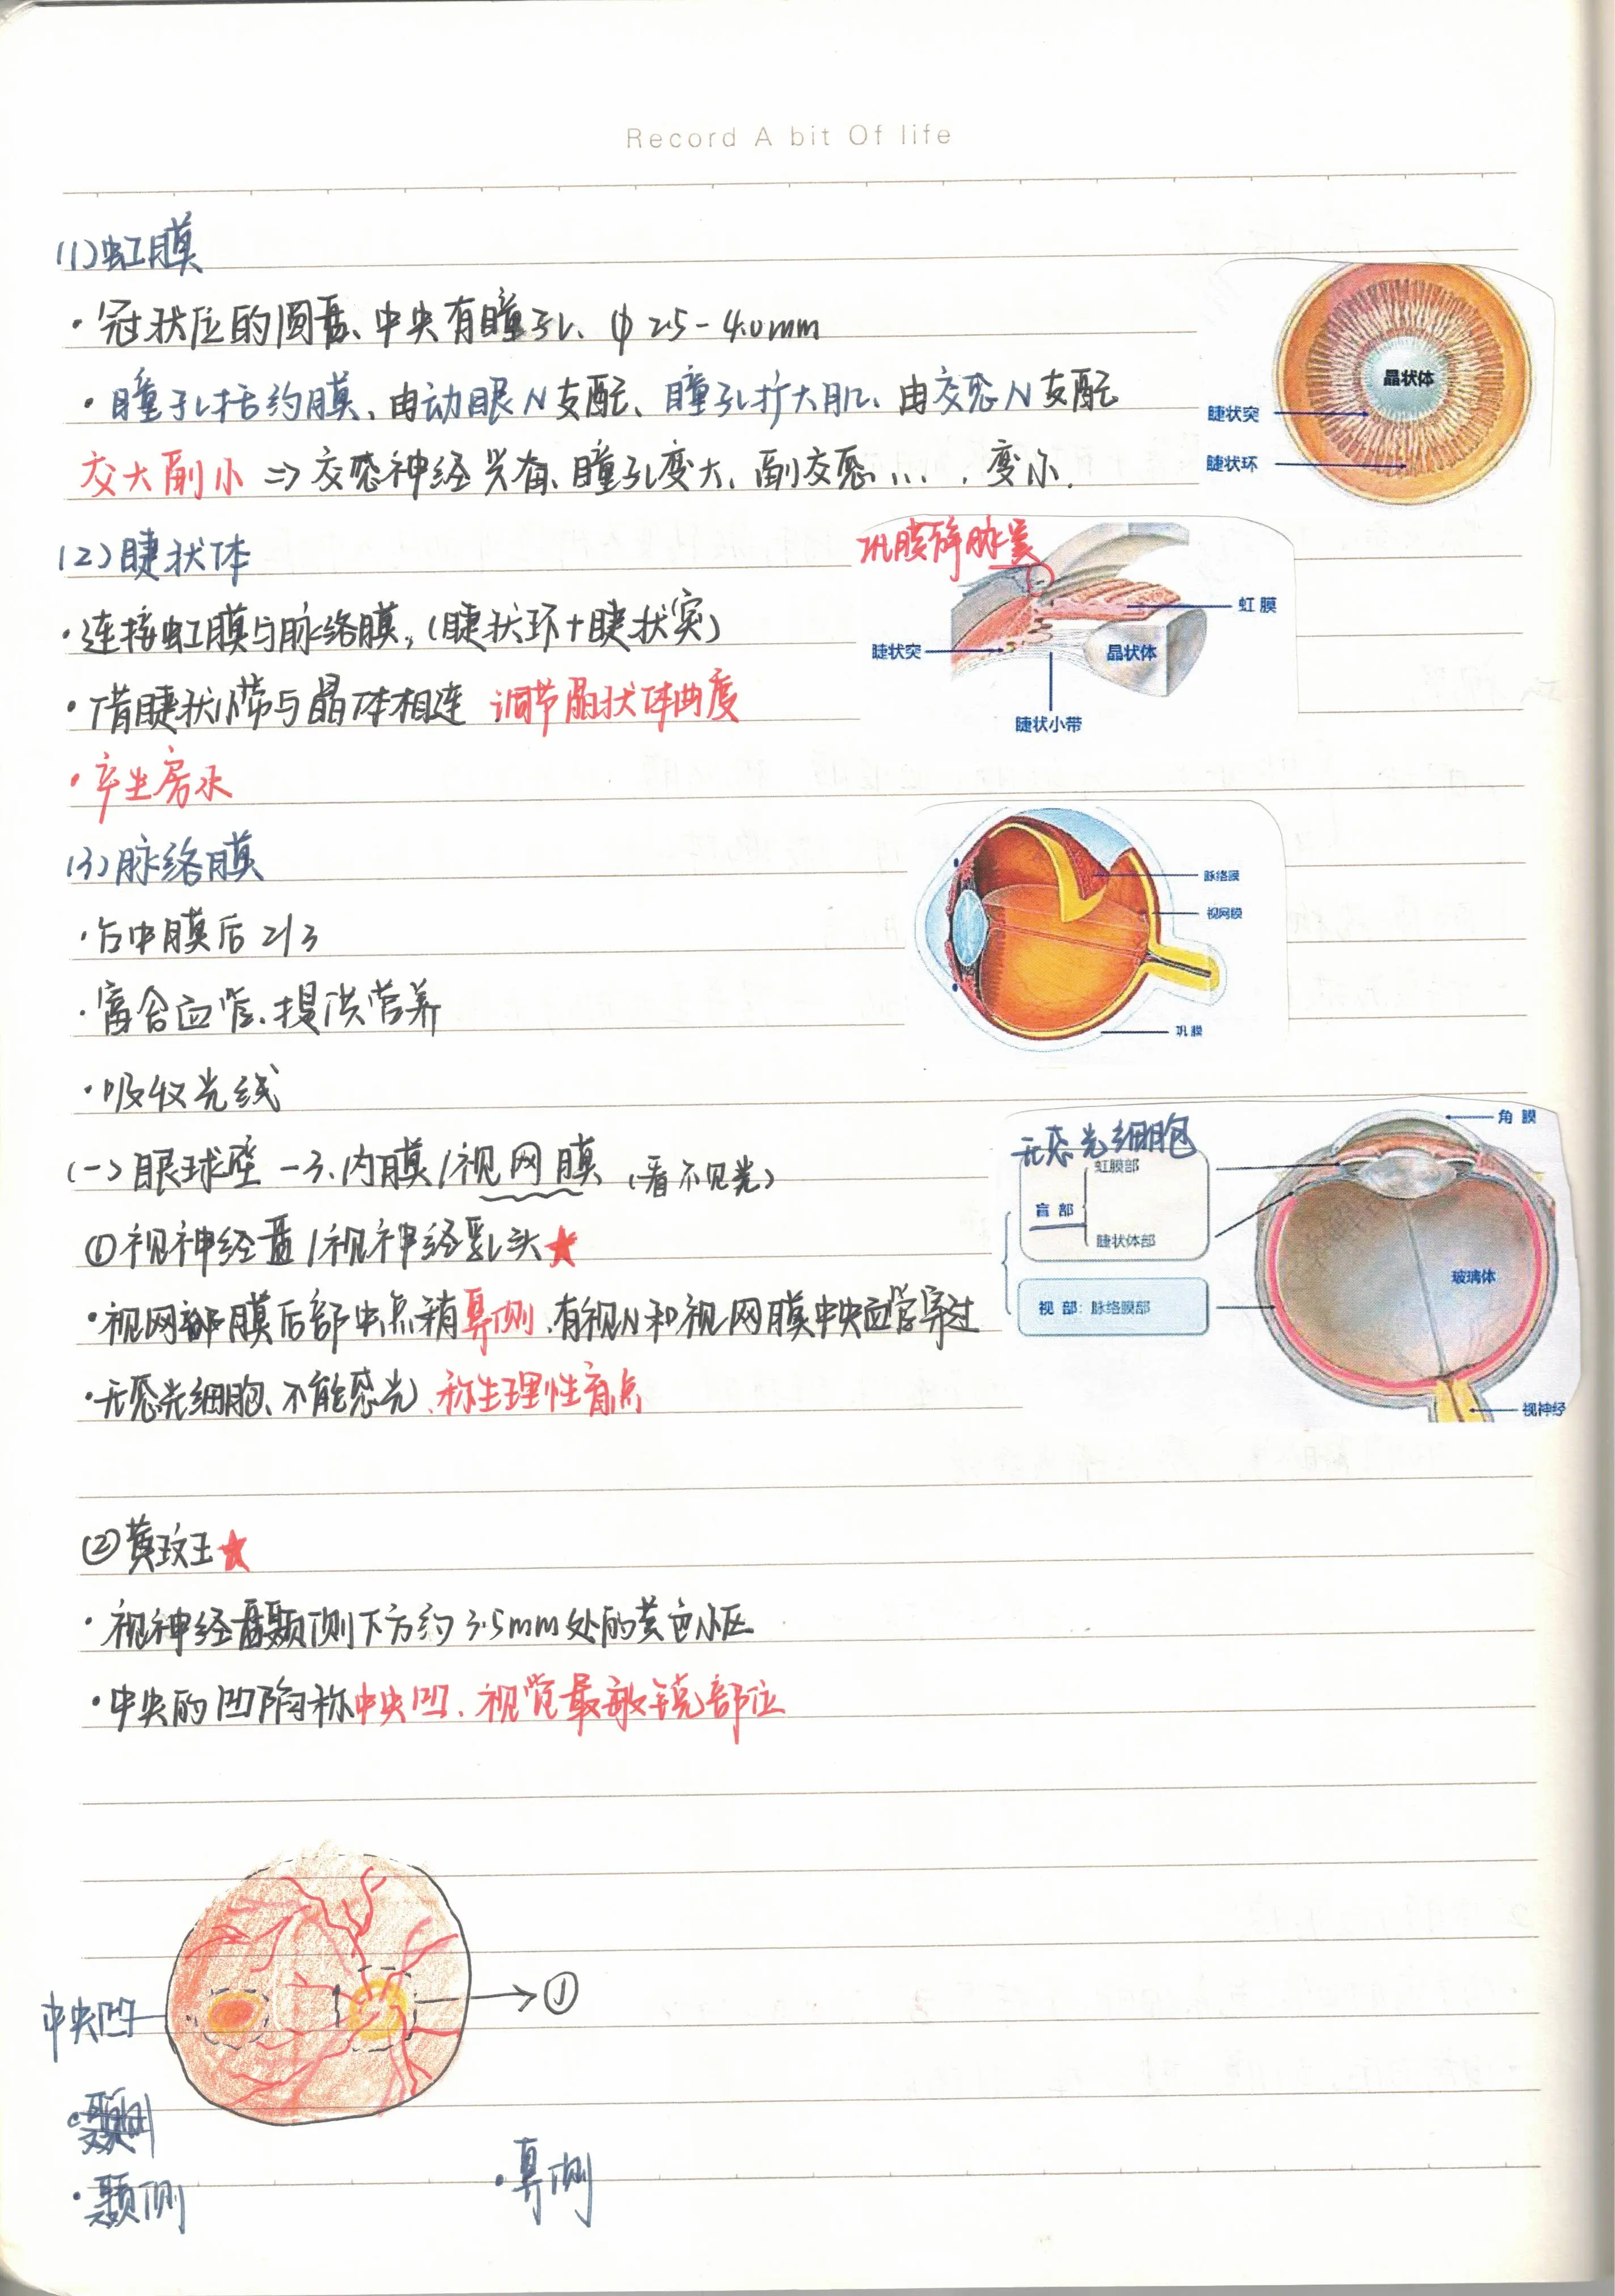 Record A bit Of life
(1)虹膜
·冠状位的圆盘、中央有瞳孔、φ2.5-4.0mm
·瞳孔括约膜、由动眼N支配、瞳孔扩大肌、由交感N支配
交大副小 ⇒ 交感神经兴奋、瞳孔变大、副交感...，变小.
晶状体
睫状突
睫状环
(2)睫状体
·连接虹膜与脉络膜，(睫状环+睫状突)
·借睫状小带与晶体相连 调节晶状体曲度
·产生房水
巩膜静脉窦
虹膜
睫状突
晶状体
睫状小带
(3)脉络膜
·占中膜后2/3
·富含血管、提供营养
·吸收光线
脉络膜
视网膜
巩膜
(一)眼球壁-3.内膜/视网膜(看不见光)
①视神经盘/视神经乳头★
·视网膜后部中点稍鼻侧、有视N和视网膜中央血管穿过
·无感光细胞、不能感光、称生理性盲点
无感光细胞
虹膜部
盲部
睫状体部
视部：脉络膜部
角膜
玻璃体
视神经
②黄斑★
·视神经盘颞侧下方约3.5mm处的黄色小区
·中央的凹陷称中央凹、视觉最敏锐部位
中央凹
①
·颞侧
·鼻侧